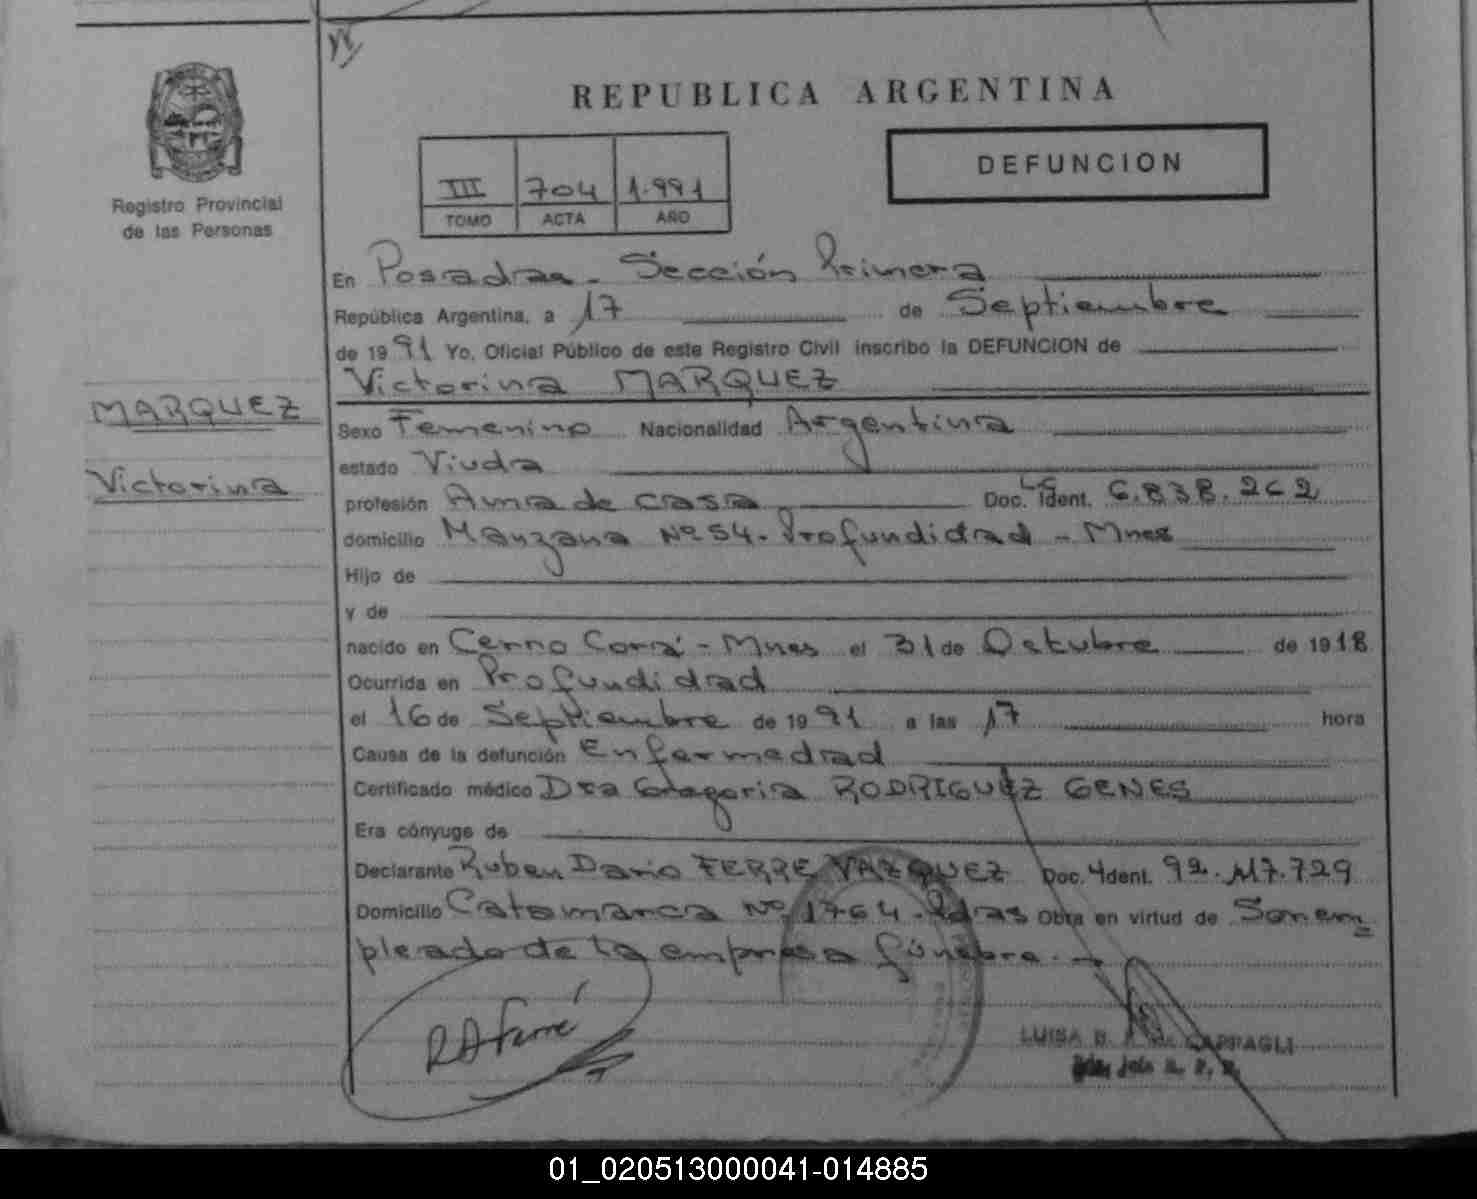 REPUBLICA ARGENTINA
DEFUNCION
III 704 1.991
TOMO ACTA AÑO
Registro Provincial
de las Personas
MARQUEZ
Victorina
En Posadas - Sección Primera
República Argentina, a 17 de Septiembre
de 1991 Yo, Oficial Público de este Registro Civil inscribo la DEFUNCION de
Victorina MARQUEZ
Sexo Femenino Nacionalidad Argentina
estado Viuda
profesión Ama de casa Doc. Ident. LC 6.838.262
domicilio Manzana Nº 54 - Profundidad - Mnes
Hijo de
y de
nacido en Cerro Corá - Mnes el 31 de Octubre de 1918
Ocurrida en Profundidad
el 16 de Septiembre de 1991 a las 17 hora
Causa de la defunción Enfermedad
Certificado médico Dra Gregoria RODRIGUEZ GENES
Era cónyuge de
Declarante Ruben Dario FERRE VAZQUEZ Doc. Ident. 92.117.729
Domicilio Catamarca Nº 1764 - Pdas Obra en virtud de Ser em=
pleado de la empresa fúnebre.-
RDFerré
LUISA B. CAPRAGLI
01_020513000041-014885